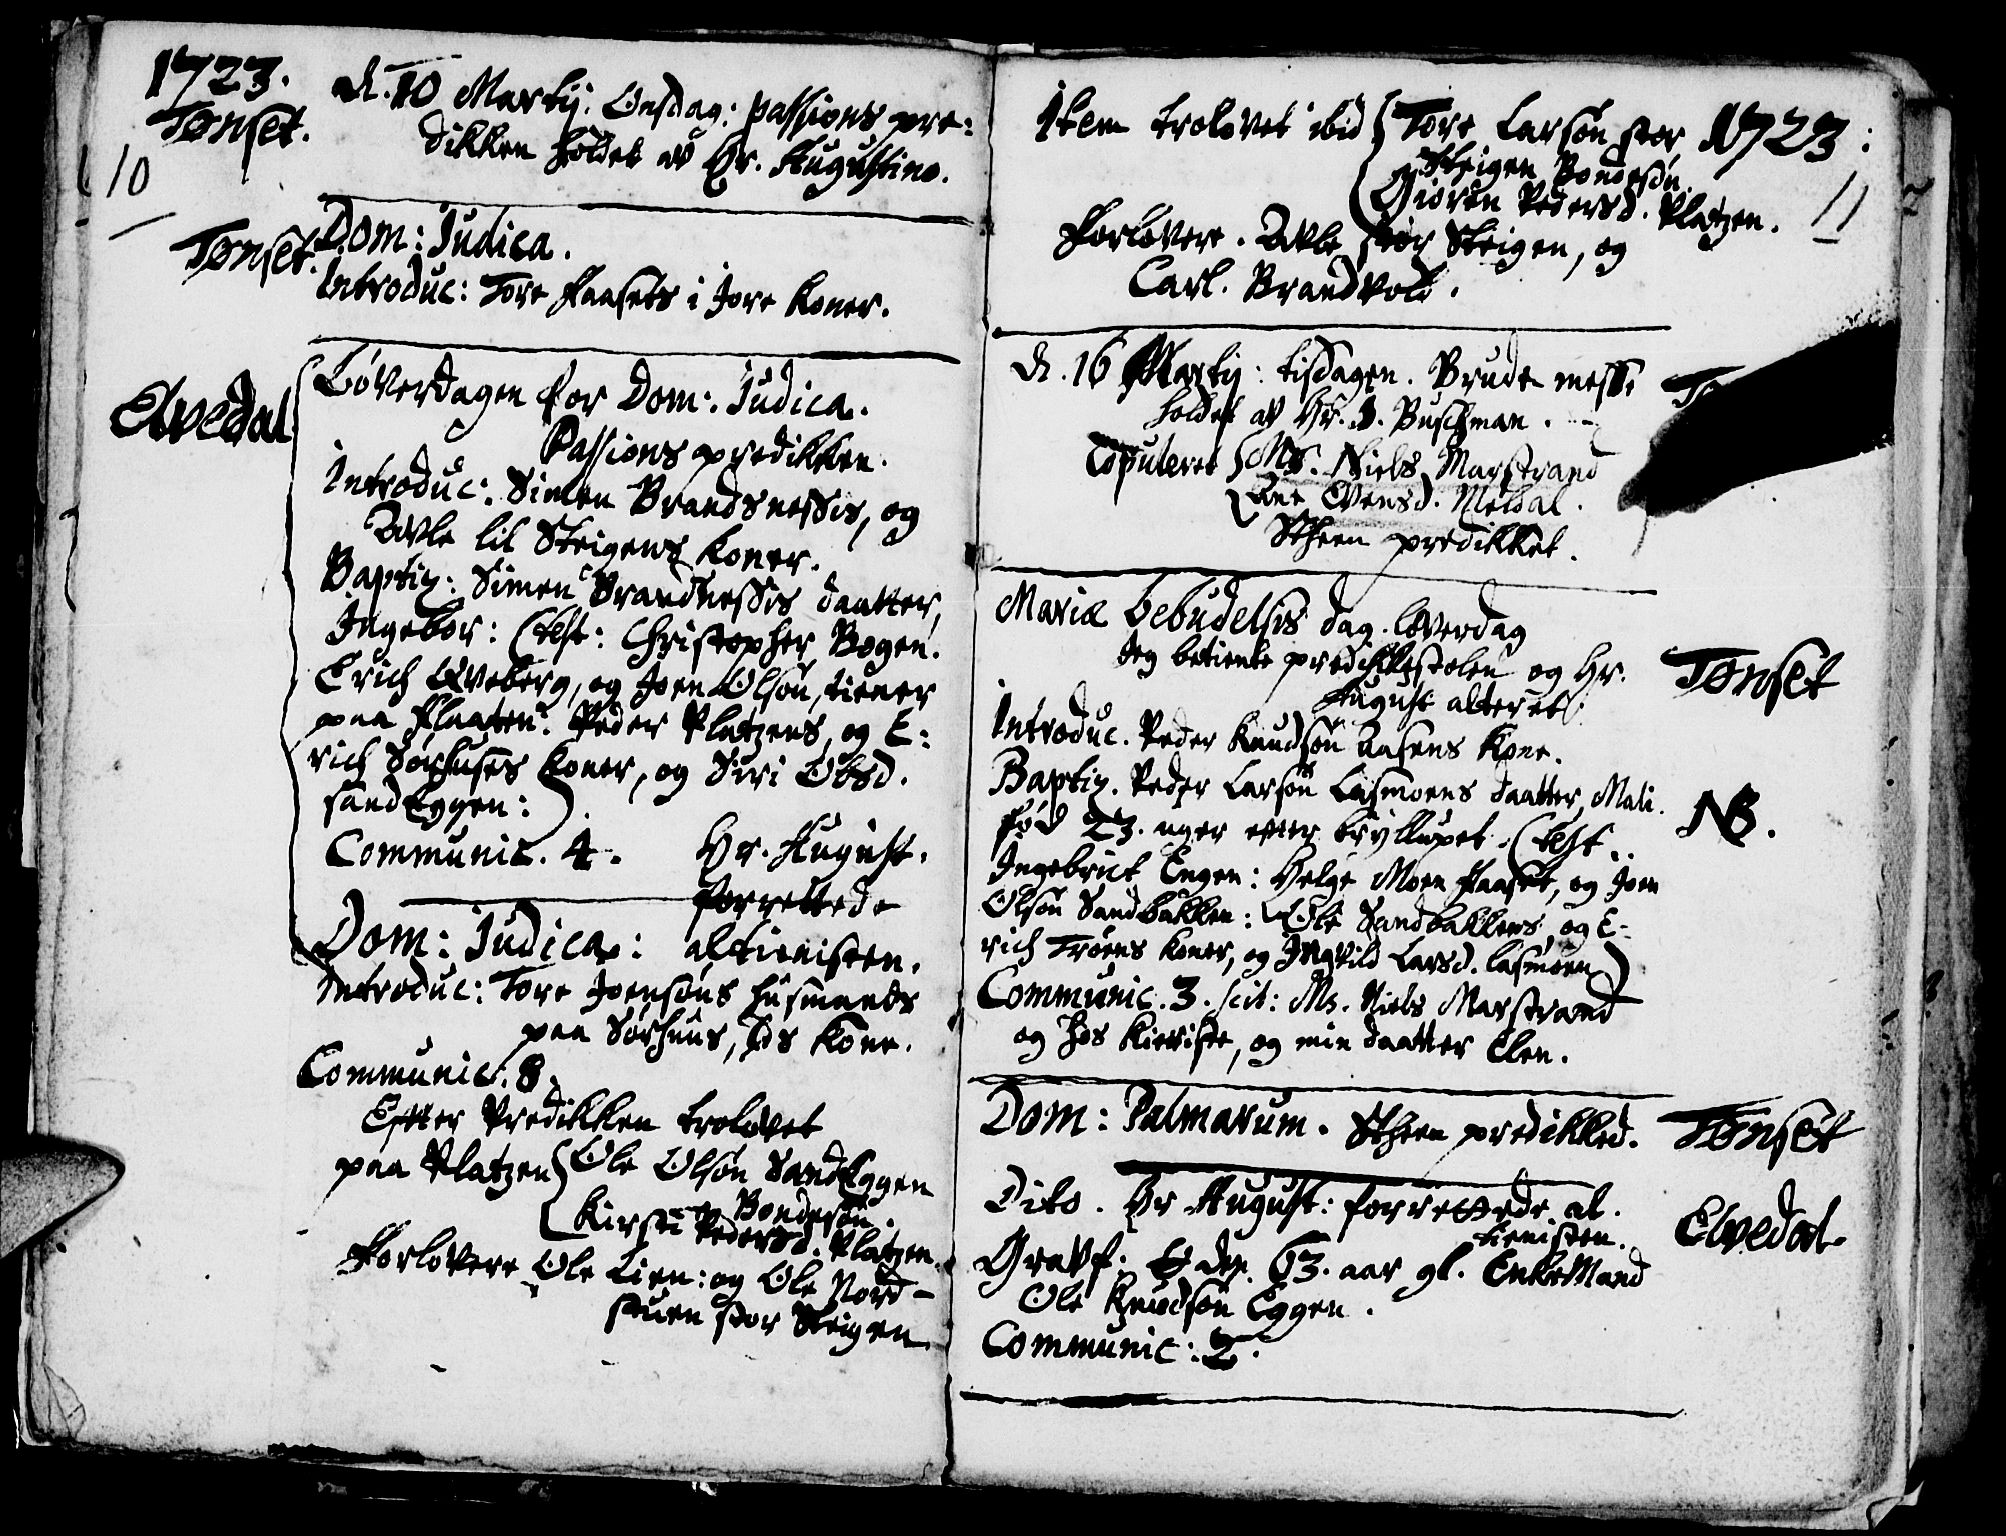 1723.
Tønset.
10
d. 10 Martij. Onsdag: passions pre:
dikken holdet av Hr. Augustino.
Tønset.
Dom: Judica.
Introduc: Tore Faasets i Jore Koner.
Elvedal
Løverdagen for Dom: Judica.
Passions predikken.
Introduc: Simen Brandsnessis, og
Avle lil Steigens Koner.
Baptiz: Simen Brandnessis daatter,
Ingebor: (test: Christopher Bogen.
Erich Qveberg, og Joen Olsøn, tiener
paa Flaaten. Peder Platzens, og E:
rich Sørhuses Koner, og Siri Olsd.
sandEggen:)
Communic. 4. Hr. August.
forrettede
Dom: Judica: altienisten.
Introduc: Tore Joensøns husmands
paa Sørhuus, Kone.
Communic: 8.
Efter Predikken trolovet
paa Platzen { Ole Olsøn SandEggen
Bondesøn.
Kirsti Pedersd. Platzen.
Forlovere Ole Lien: og Ole Nord-
stuen stor Steigen
Item trolovet ibid { Tore Larsøn stor
1723:
Steigen Bondesøn
11
Giøren Pedersd. Platzen.
Forlovere. Avle stor Steigen, og
Carl. Brandvold.
d. 16 Martij: tisdagen. Brude messe
holdet av Hr. J. Buschman.
Copuleret { Ms. Niels Marstrand
Ane Evensd. Meldal.
Stheen predikket.
Mariæ bebudelsis dag. løverdag
Jeg betiente predikkestolen og Hr.
August alteret.
Tønset
Introduc. Peder Knudsøn Aasens Kone.
Baptiz. Peder Larsøn Lasmoens daatter, Mali.
NB.
fød 23. uger etter bryllupet. (test.
Ingebrict Engen: Helge Moen Faaset, og Joen
Olsøn Sandbakken: Ole Sandbakkens, og E-
rich Trøens Koner, og Ingvild Larsd. Lasmoen)
Communic. 3. scil: Ms. Niels Marstrand
og hos Kieriste, og min daatter Elen.
Dom: Palmarum. Stheen predikked.
Tønset
Dito. Hr August: forrettede al.
tienisten.
Elvedal
Gravf. 63. aar gl. EnkeMand
Ole Knudsøn Eggen.
Communic: 2.